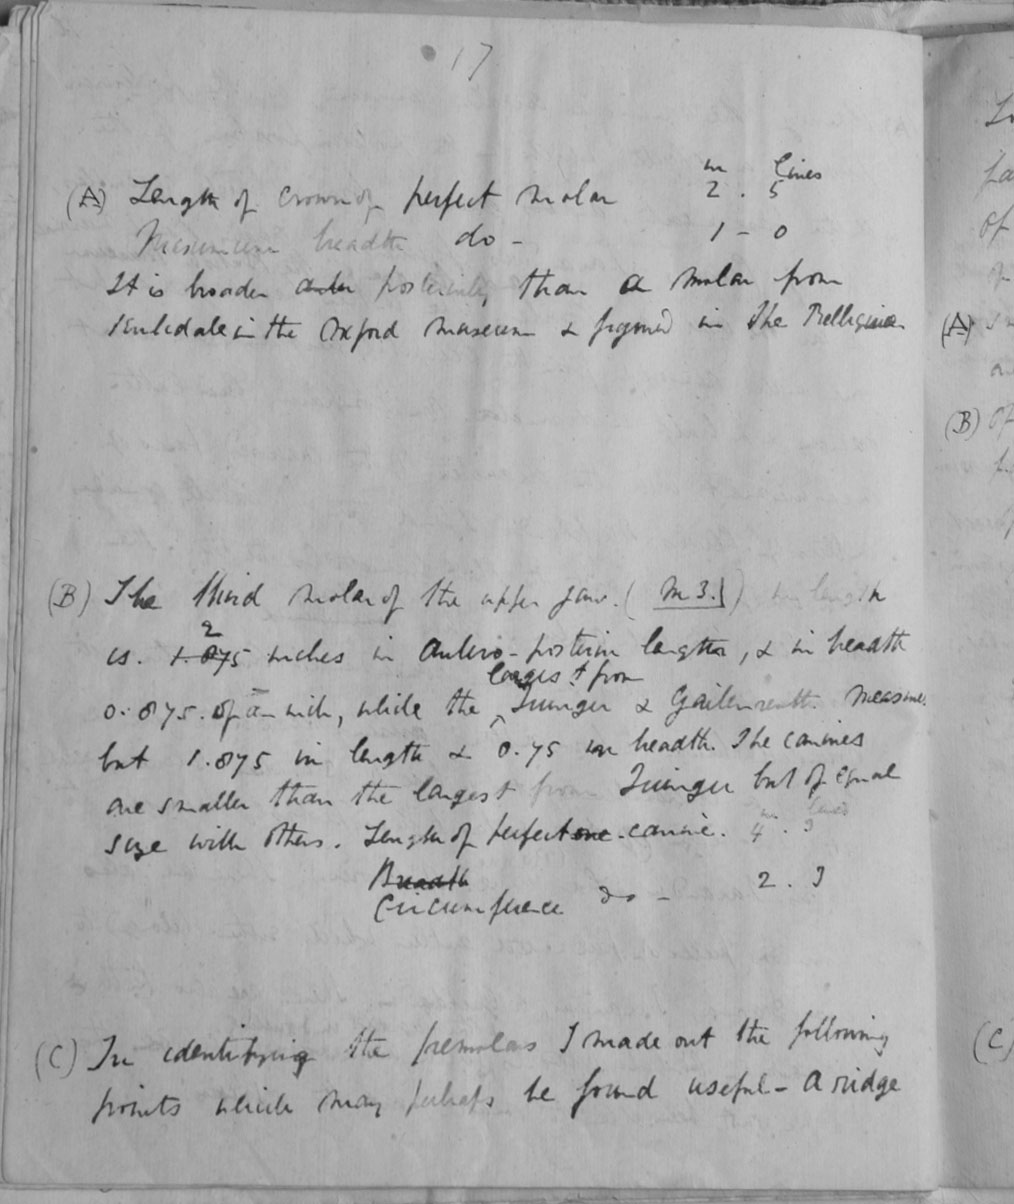 17
in Lines
(A) Length of crown of perfect molar 2 . 5
Maximum breadth do - 1 - 0
It is broader posteriorly than a molar from
Kirkdale in the Oxford museum & figured in The Relliquiae
(B) The third molar of the upper jaw. (m 3.) length
2
is. 1.875 inches in antero-posterior length, & in breadth
largest from
0.875. of an inch, while the Luinger & Gailenreuth. measures
but 1.875 in length & 0.75 in breadth. The canines
are smaller than the largest from Luinger but of equal
in lines
size with others. Length of perfect one canine. 4 . 3
Breadth
Circumference do - 2 . 3
(C) In identifying the premolars I made out the following
points which may perhaps be found useful - A ridge
(A)
(B) Of
(C)